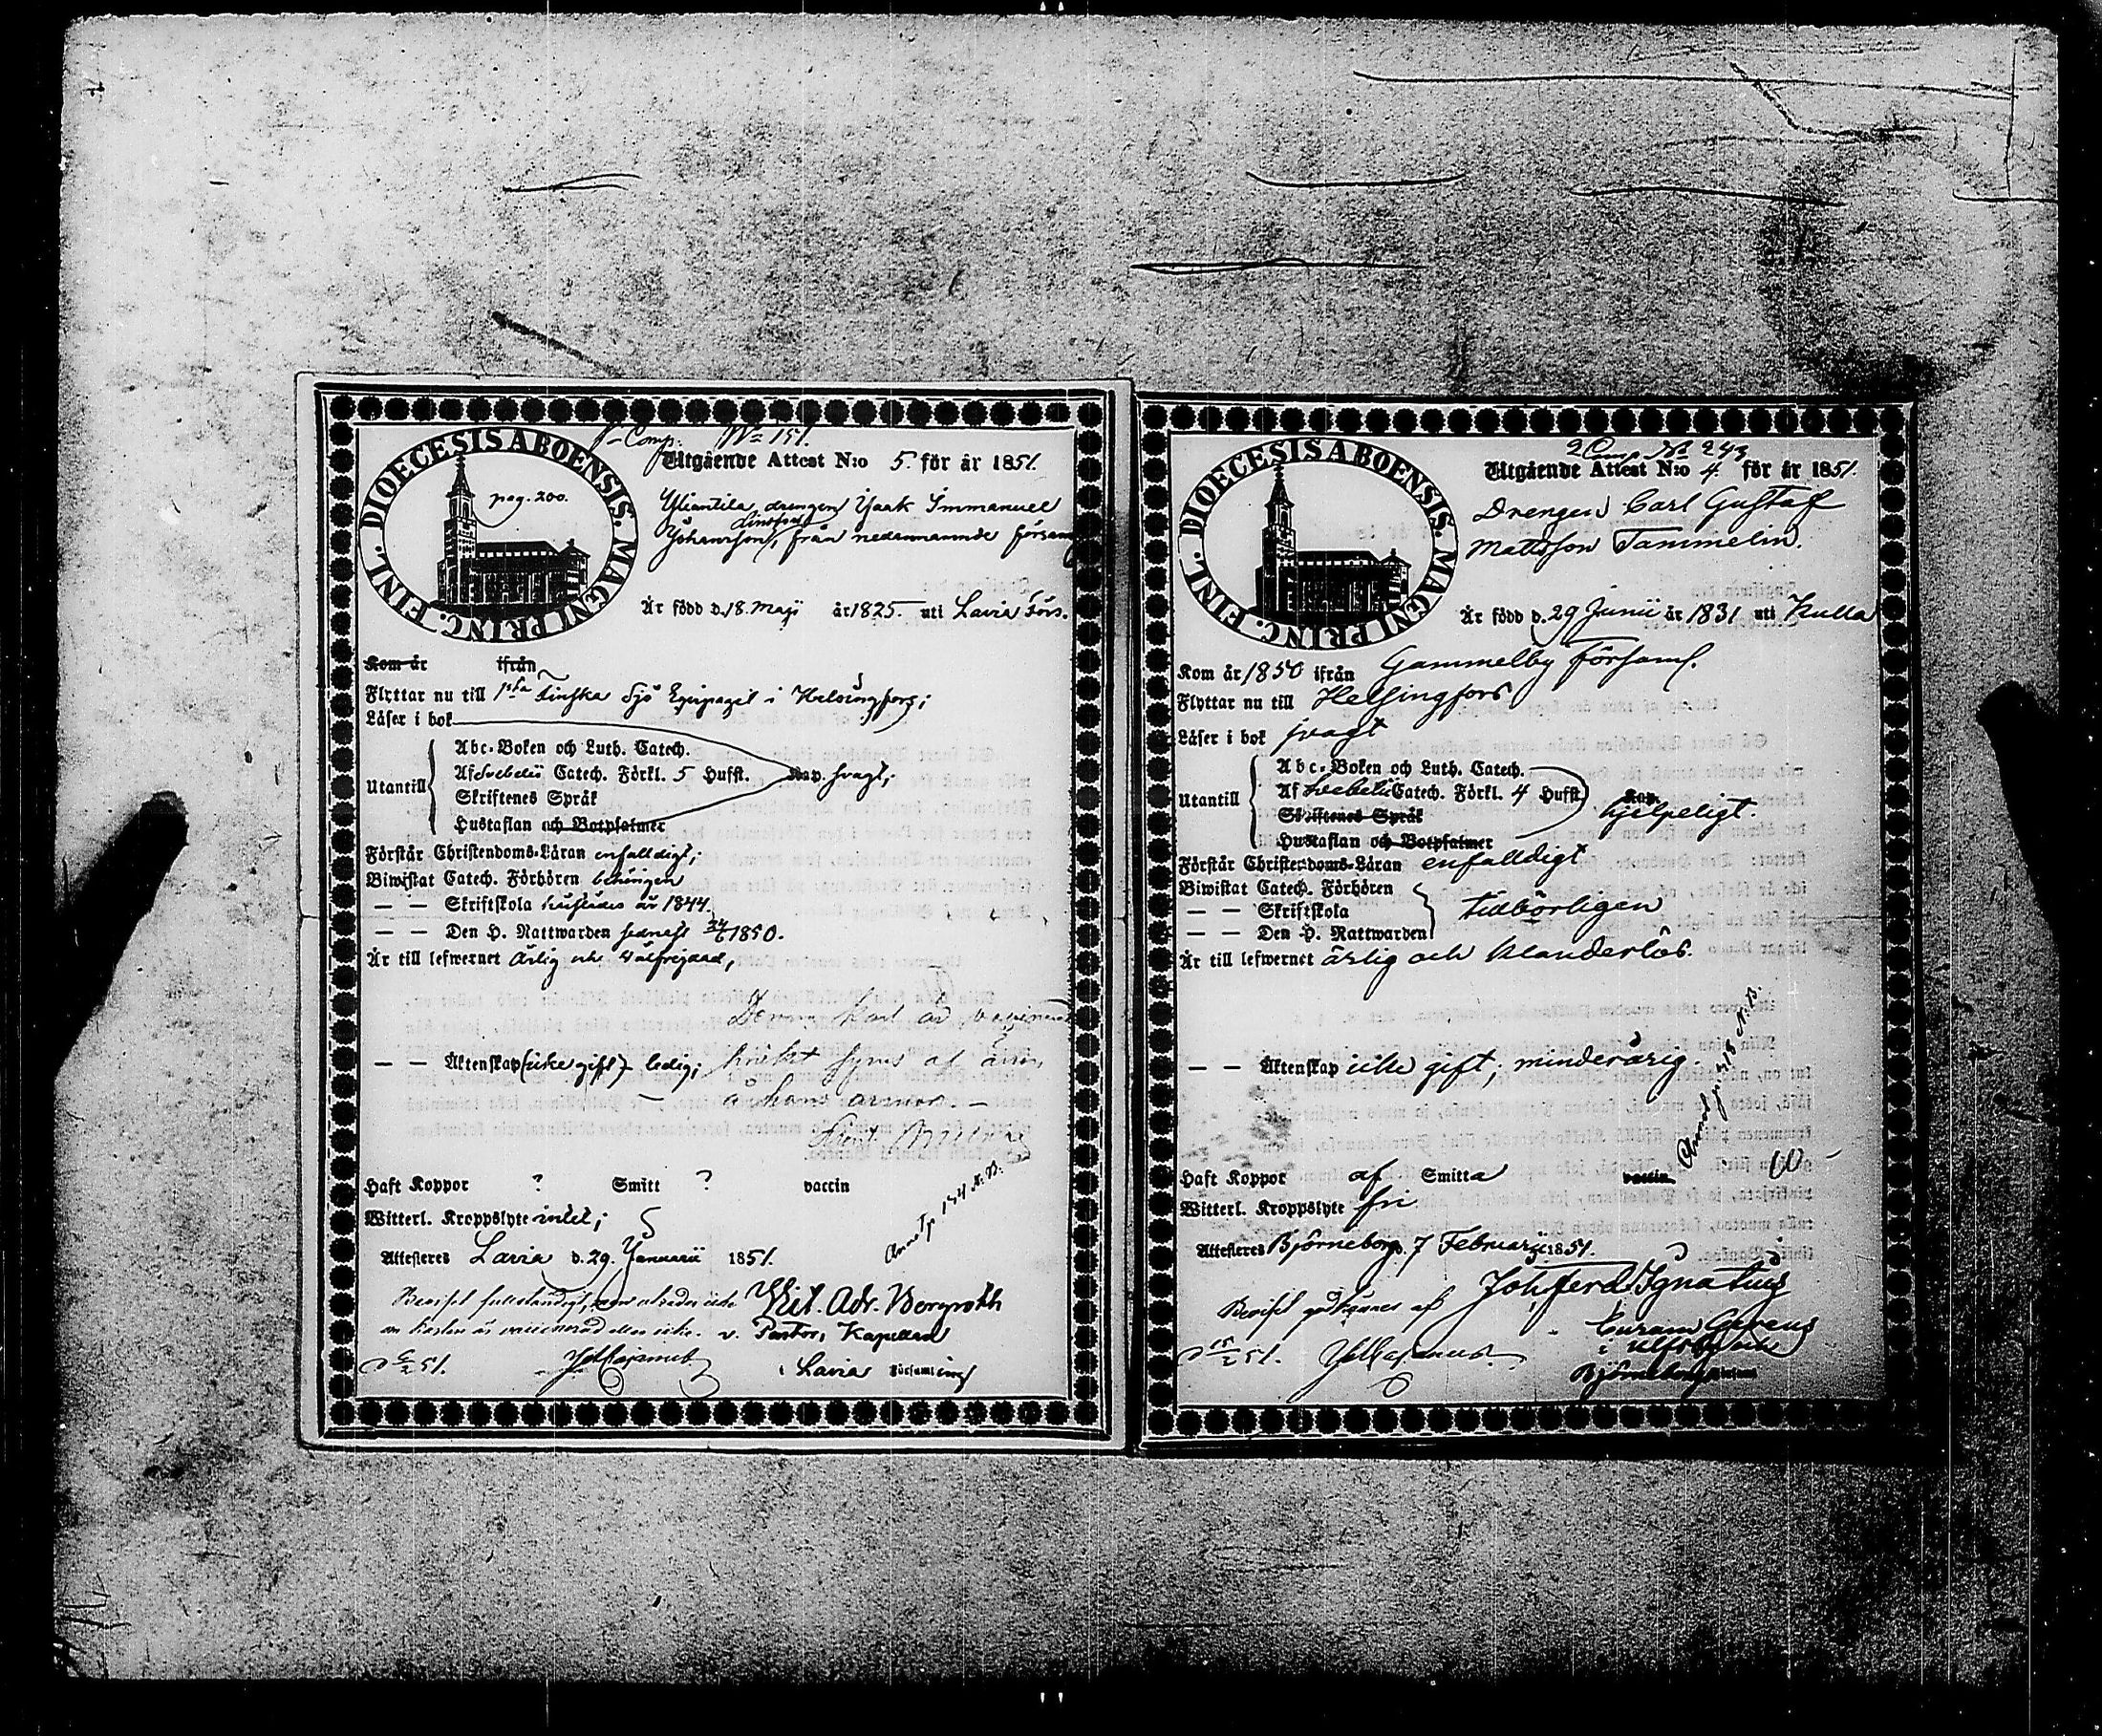 1 Comp. No 151.
DIOECESIS ABOENSIS. MAGNI PRINC. FINL.
pag. 200.
Utgående Attest N:o 5. för år 1851.
Yliantila drengen Isaak Immanuel
Johansson, från nedannämnde församl
Är född d. 18. Maji år 1825. uti Lavia Förs.
Kom år ifrån
Flyttar nu till 1sta Finska Sjö Equipaget i Helsingfors;
Läser i bok
Abc-Boken och Luth. Catech.
Utantill Af Svebelii Catech. Förkl. 5 Hufst. Kap. svagt;
Skriftenes Språk
Hustaflan och Botpsalmer
Förstår Christendoms-Läran enfalldigt;
Biwistat Catech. Förhören behörigen
— — Skriftskola år 1844.
— — Den H. Nattwarden sednast 1850.
Är till lefwernet ärlig och välfrejdad,
Denna Karl är vaccinerad
— — Äktenskap (icke gift) ledig; hvilket synes af ärren
å hans armar. —
Haft Koppor ? Smitt ? vaccin
Witterl. Kroppslyte intet;
Attesteres Lavia d. 29. Januarii 1851.
Vil. Adr. Bergroth
Beviset fullständigt, men
v. Pastor, Kapellan
i Lavia Församling
2 Comp. No 243
DIOECESIS ABOENSIS. MAGNI PRINC. FINL.
Utgående Attest N:o 4. för år 1851.
Drengen Carl Gustaf
Mattsson Tammelin.
Är född d. 29 Junii år 1831 uti Kulla
Kom år 1850 ifrån Gammelby Församl.
Flyttar nu till Helsingfors
Läser i bok svagt
Abc-Boken och Luth. Catech.
Utantill Af Svebelii Catech. Förkl. 4 Hufst. Kap.
hjelpeligt.
Skriftenes Språk
Hustaflan och Botpsalmer
Förstår Christendoms-Läran enfalldigt
Biwistat Catech. Förhören
— — Skriftskola tidbörligen
— — Den H. Nattwarden
Är till lefwernet ärlig och klanderlös.
— — Äktenskap icke gift; minderårig.
Haft Koppor af Smitta vaccin
Witterl. Kroppslyte fri
Attesteres Björneborg d. 7 Februarii 1851.
Joh. Ferd. Ignatius
Beviset godkännes af
Curam Gerens
i Ulfsby och
Björneborgs